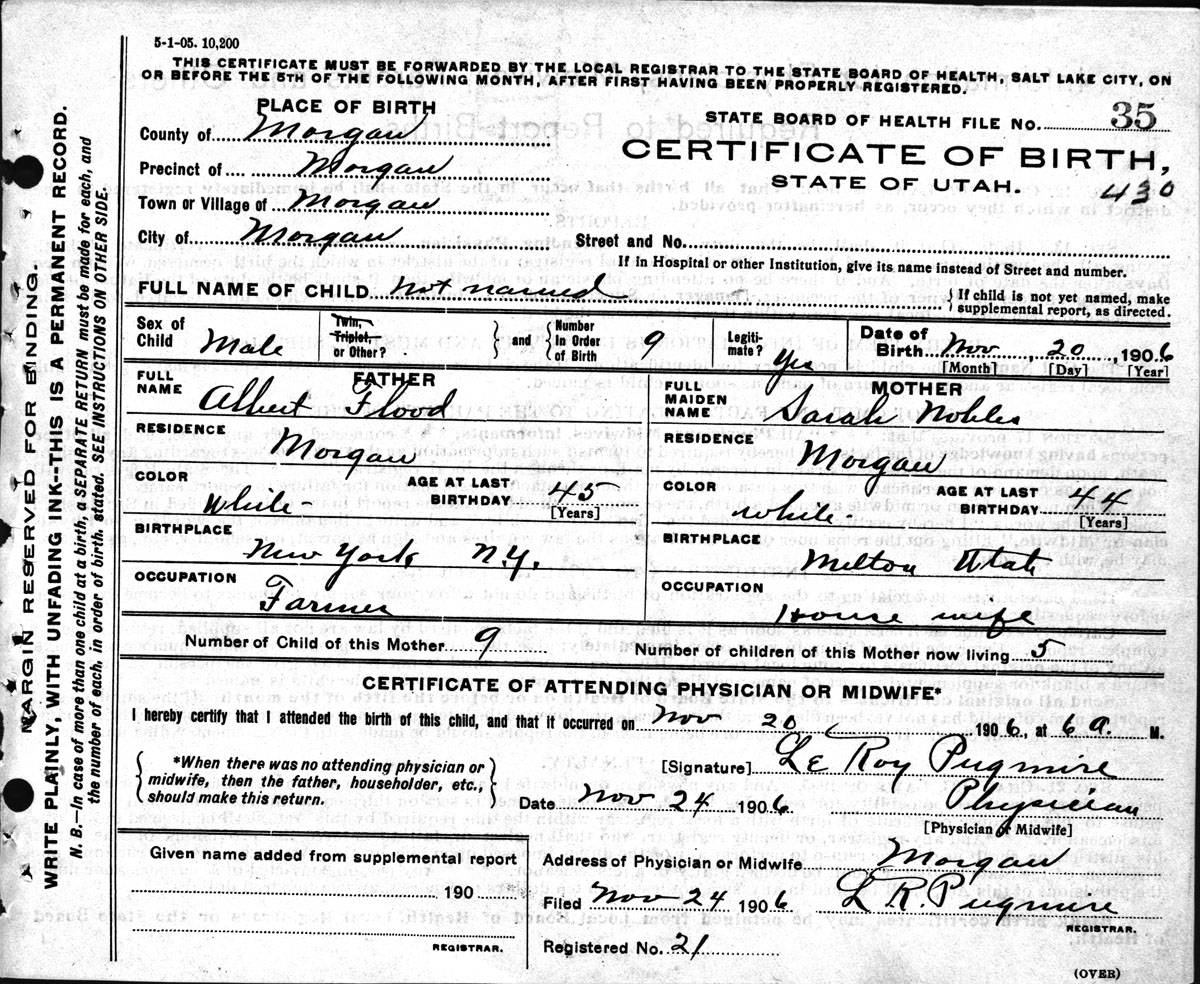 5-1-05. 10,200
THIS CERTIFICATE MUST BE FORWARDED BY THE LOCAL REGISTRAR TO THE STATE BOARD OF HEALTH, SALT LAKE CITY, ON
OR BEFORE THE 5TH OF THE FOLLOWING MONTH, AFTER FIRST HAVING BEEN PROPERLY REGISTERED.
MARGIN RESERVED FOR BINDING.
WRITE PLAINLY, WITH UNFADING INK--THIS IS A PERMANENT RECORD.
N. B.—In case of more than one child at a birth, a SEPARATE RETURN must be made for each, and
the number of each, in order of birth, stated. SEE INSTRUCTIONS ON OTHER SIDE.
PLACE OF BIRTH
County of Morgan
Precinct of Morgan
Town or Village of Morgan
City of Morgan
STATE BOARD OF HEALTH FILE No. 35
CERTIFICATE OF BIRTH,
STATE OF UTAH. 430
Street and No.
If in Hospital or other Institution, give its name instead of Street and number.
FULL NAME OF CHILD not named { If child is not yet named, make
supplemental report, as directed.
Sex of Child Male
Twin, Triplet, or Other? } and { Number in Order of Birth 9
Legitimate? Yes
Date of Birth Nov 20, 1906
[Month] [Day] [Year]
FATHER
FULL NAME Albert Flood
RESIDENCE Morgan
COLOR White
AGE AT LAST BIRTHDAY 45 [Years]
BIRTHPLACE New York N.Y.
OCCUPATION Farmer
MOTHER
FULL MAIDEN NAME Sarah Nobles
RESIDENCE Morgan
COLOR White
AGE AT LAST BIRTHDAY 44 [Years]
BIRTHPLACE Milton Utah
OCCUPATION House wife
Number of Child of this Mother 9
Number of children of this Mother now living 5
CERTIFICATE OF ATTENDING PHYSICIAN OR MIDWIFE*
I hereby certify that I attended the birth of this child, and that it occurred on Nov 20 1906, at 6 a. M.
{ *When there was no attending physician or
midwife, then the father, householder, etc.,
should make this return. }
[Signature] Le Roy Pugmire
Date Nov 24 1906 Physician
[Physician or Midwife]
Given name added from supplemental report
190
REGISTRAR.
Address of Physician or Midwife Morgan
Filed Nov 24 1906 L R. Pugmire
REGISTRAR.
Registered No. 21
(OVER)